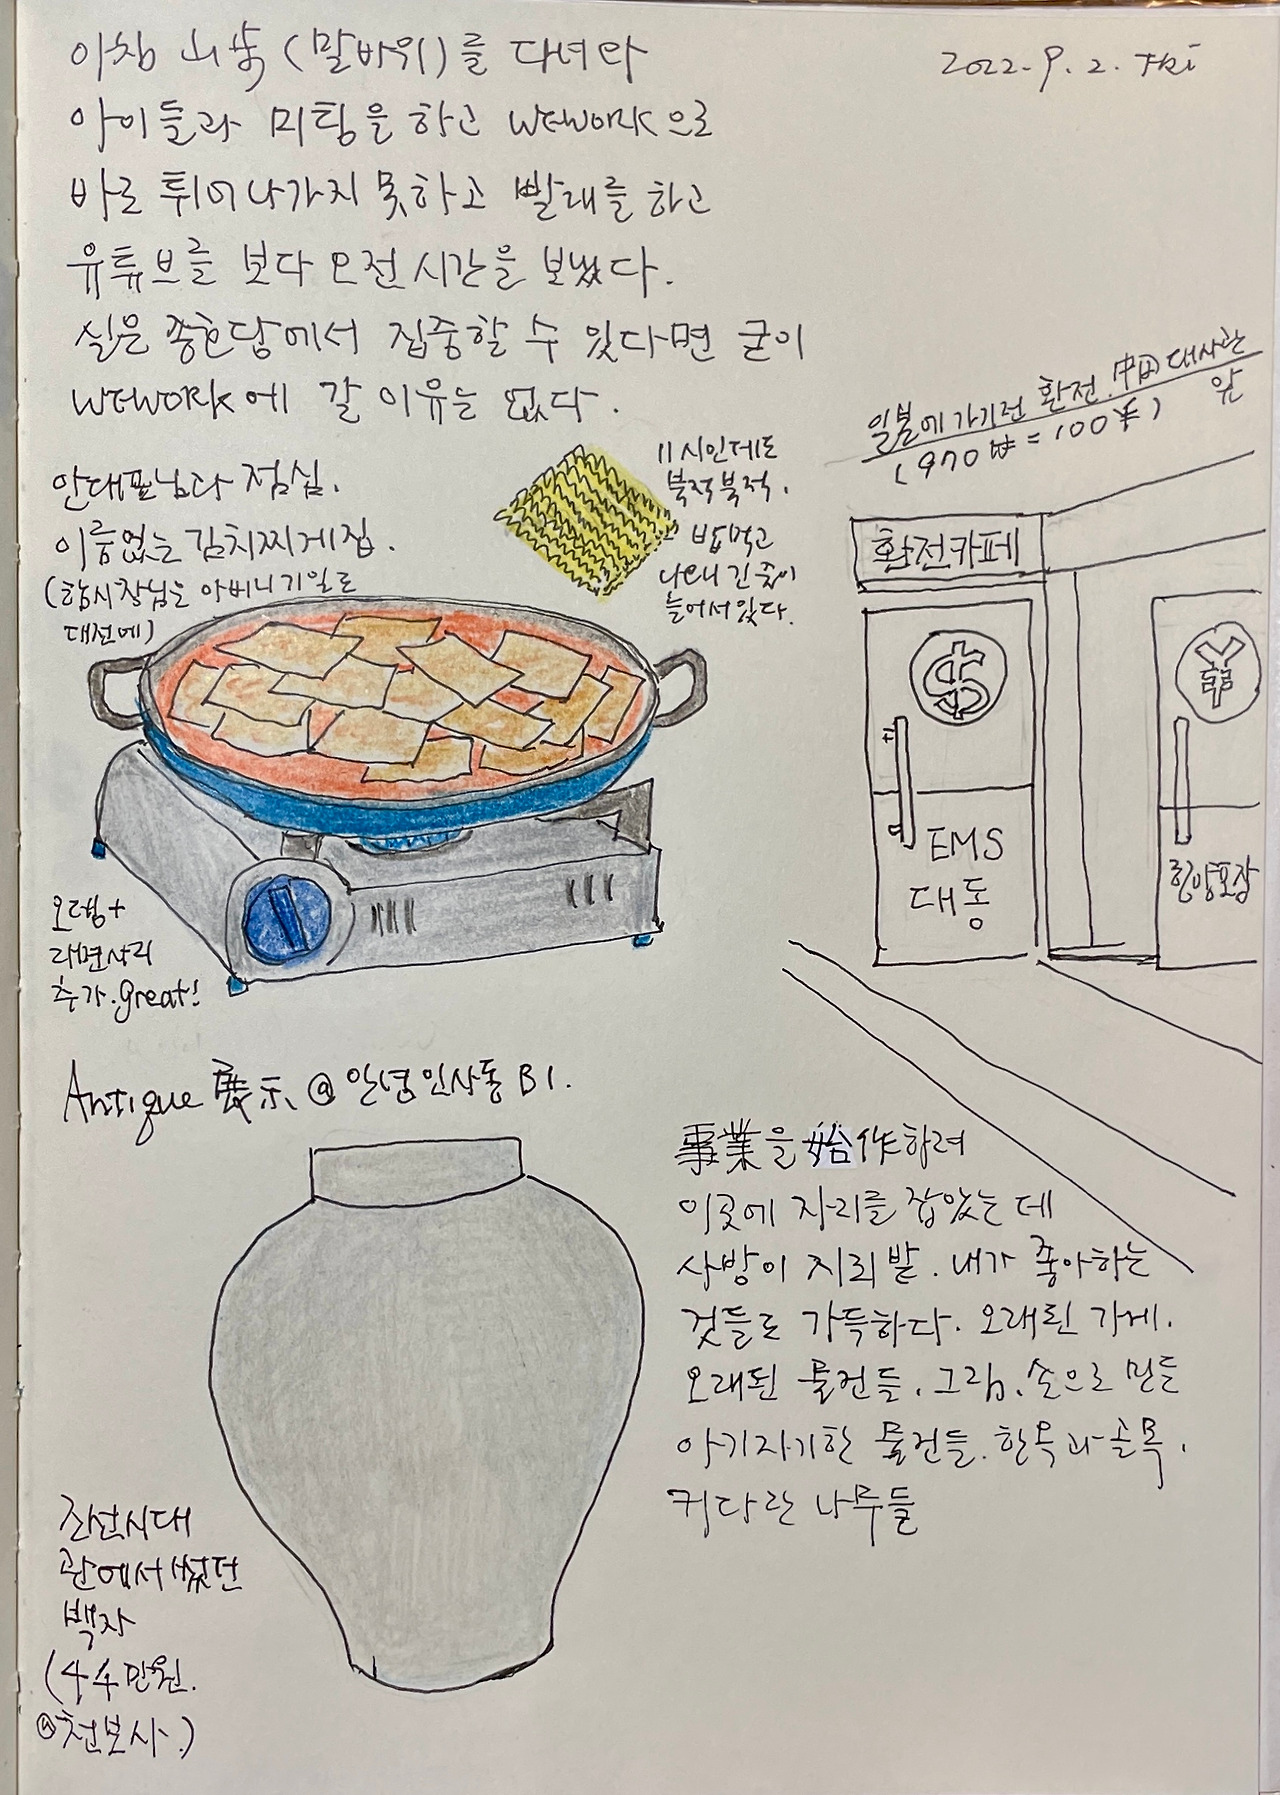 2022. 9. 2. Fri
아침 山步 (말바위)를 다녀와
아이들과 미팅을 하고 WEWORK으로
바로 튀어나가지 못하고 빨래를 하고
유튜브를 보다 오전 시간을 보냈다.
실은 종흔담에서 집중할 수 있다면 굳이
WEWORK에 갈 이유는 없다.
안대표님과 점심.
이름없는 김치찌게집.
(함시장님은 아버니 기일로
대전에)
11시인데도
북적북적.
밥먹고
나오니 긴 줄이
늘어서 있다.
오뎅+
라면사리
추가. great!
일본에 가기전 환전. 中国대사관
앞
(970₩ = 100¥)
환전카페
$
¥
EMS
대동
포장
Antique 展示 @ 안녕인사동 B1.
조선시대
관에서 썼던
백자
(44만원.
@천보사.)
事業을 始作하려
이곳에 자리를 잡았는 데
사방이 지뢰밭. 내가 좋아하는
것들로 가득하다. 오래된 가게.
오래된 물건들. 그림. 손으로 만든
아기자기한 물건들. 한옥과 골목.
커다란 나무들